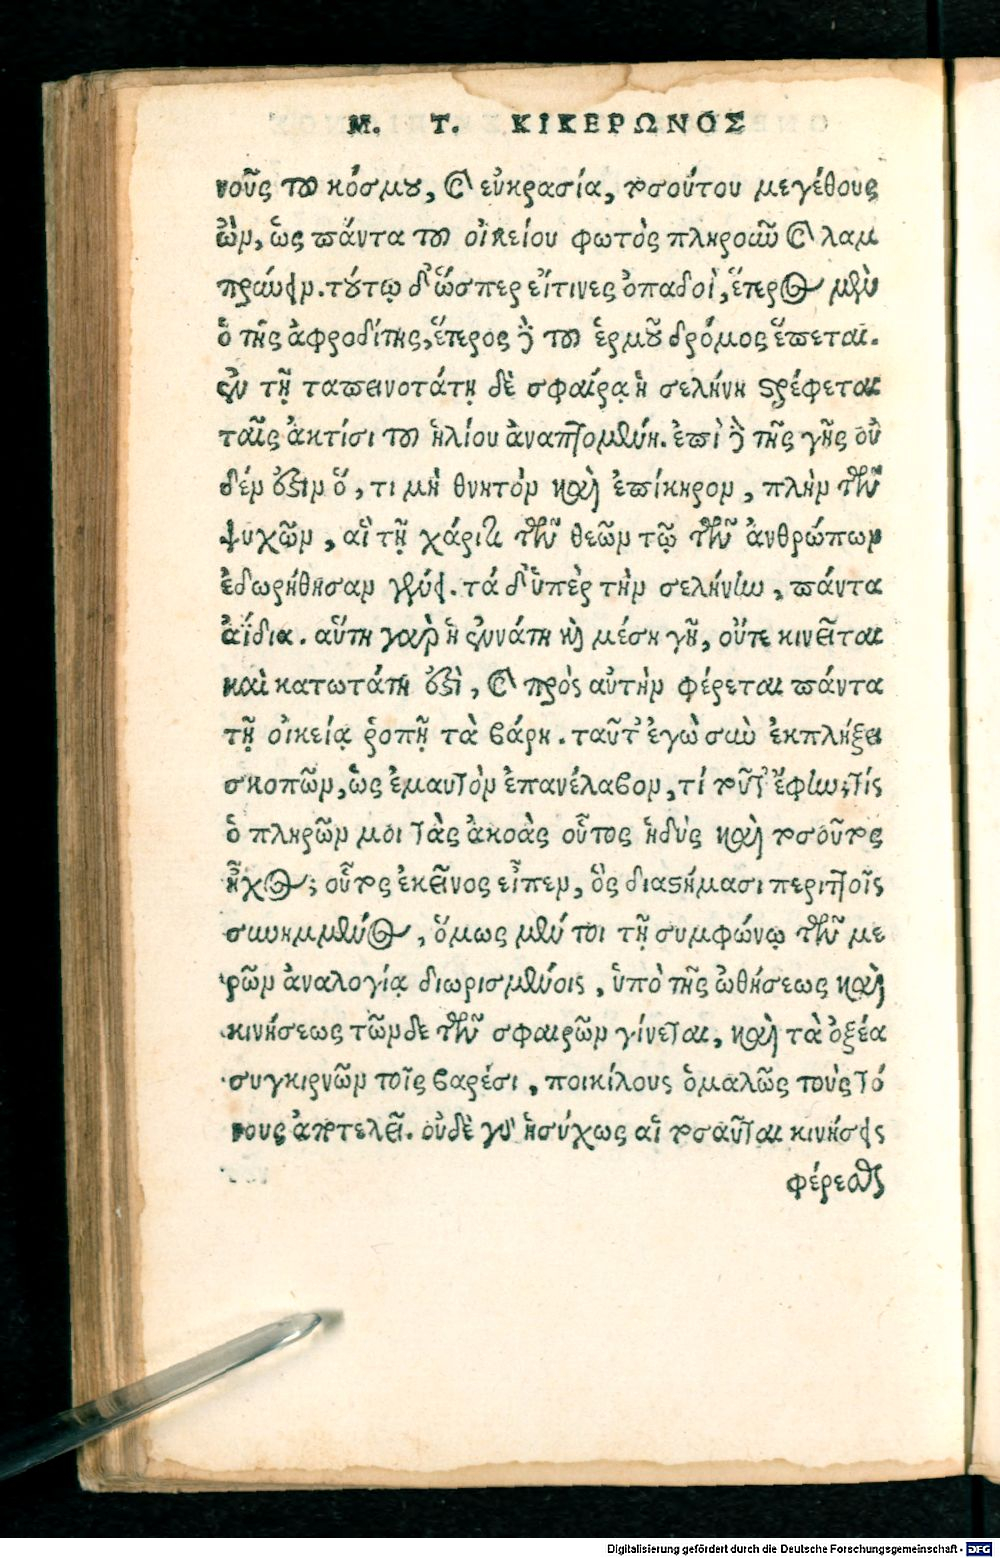 Μ. Τ. ΚΙΚΕΡΩΝΟΣ
νοῦς τοῦ κόσμου, καὶ εὐκρασία, τοσούτου μεγέθους
ὢν, ὡς πάντα τοῦ οἰκείου φωτὸς πληροῦν καὶ λαμ
πρύνειν. τούτῳ δ' ὥσπερ εἴτινες ὀπαδοὶ, ἕτερος μὲν
ὁ τῆς ἀφροδίτης, ἕτερος δὲ τοῦ ἑρμοῦ δρόμος ἕπεται.
ἐν τῇ ταπεινοτάτῃ δὲ σφαίρᾳ ἡ σελήνη στρέφεται
ταῖς ἀκτίσι τοῦ ἡλίου ἀναπτομένη. ἐπὶ δὲ τῆς γῆς οὐ
δέν ἐστιν ὅ, τι μὴ θνητὸν καὶ ἐπίκηρον, πλὴν τῶν
ψυχῶν, αἳ τῇ χάριτι τῶν θεῶν τῷ τῶν ἀνθρώπων
ἐδωρήθησαν γένει. τά δ' ὑπὲρ τὴν σελήνην, πάντα
ἀΐδια. αὕτη γὰρ ἡ ἐννάτη καὶ μέση γῆ, οὔτε κινεῖται
καὶ κατωτάτη ἐστὶ, καὶ πρὸς αὐτὴν φέρεται πάντα
τῇ οἰκείᾳ ῥοπῇ τὰ βάρη. ταῦτ' ἐγὼ σὺν ἐκπλήξει
σκοπῶν, ὡς ἐμαυτὸν ἐπανέλαβον, τί τοῦτ' ἔφην; τίς
ὁ πληρῶν μοι τὰς ἀκοὰς οὗτος ἡδὺς καὶ τοσοῦτος
ἦχος; οὗτος ἐκεῖνος εἶπεν, ὃς διαστήμασι περιττοῖς
συνημμένος, ὅμως μέν τοι τῇ συμφώνῳ τῶν με
ρῶν ἀναλογίᾳ διωρισμένοις, ὑπὸ τῆς ὠθήσεως καὶ
κινήσεως τῶνδε τῶν σφαιρῶν γίνεται, καὶ τὰ ὀξέα
συγκιρνῶν τοῖς βαρέσι, ποικίλους ὁμαλῶς τοὺς τό
νους ἀποτελεῖ. οὐδὲ γὰρ ἡσύχως αἱ τοσαῦται κινήσεις
φέρεσθαι
Digitalisierung gefördert durch die Deutsche Forschungsgemeinschaft - DFG